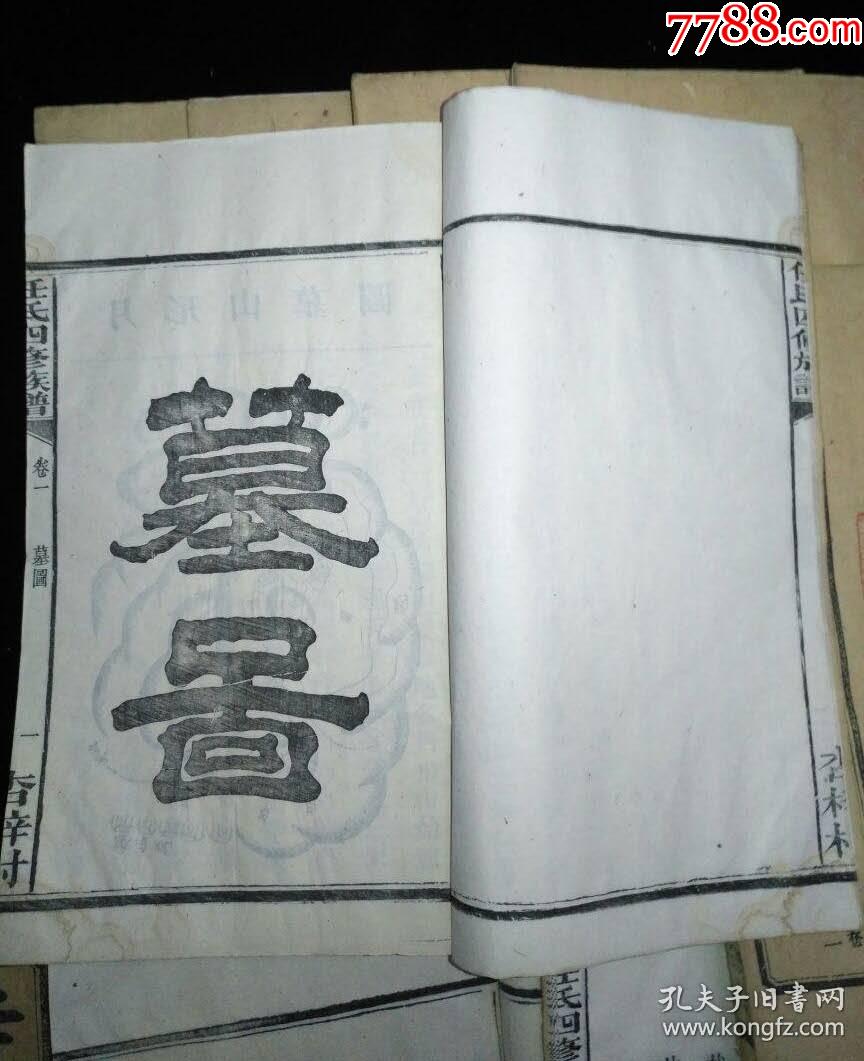 7788.com
任氏四修族譜
墓啚
任氏四修族譜
卷一
墓圖
一
杏梓村
任氏四修
孔夫子旧书网
www.kongfz.com